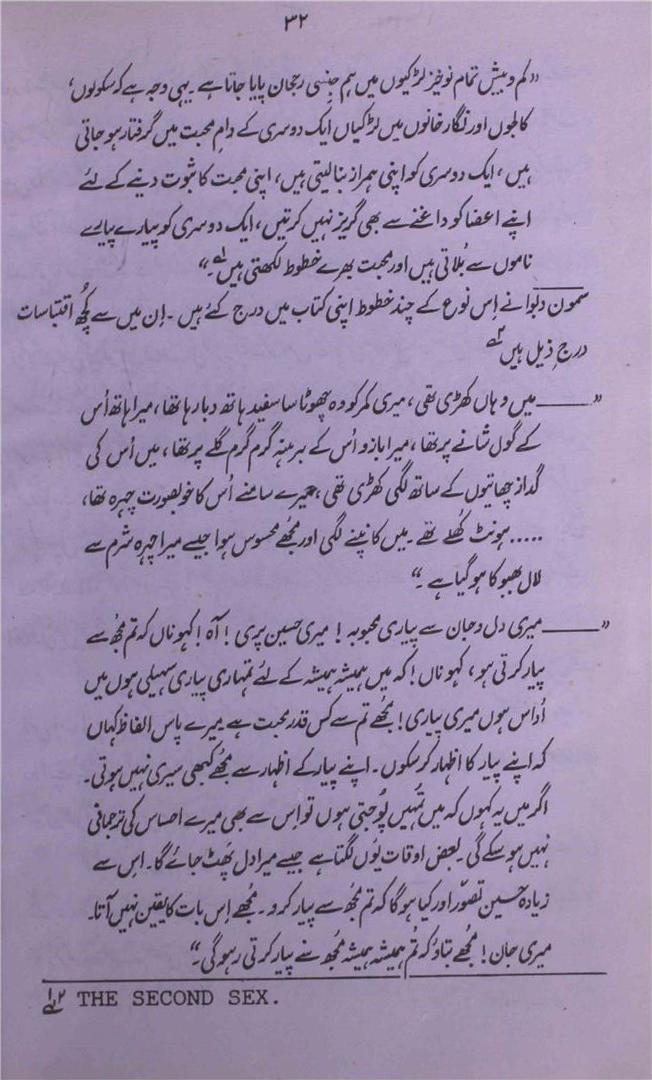 ۳۲
”کم و بیش تمام نوخیز لڑکیوں میں ہم جنسی رجحان پایا جاتا ہے۔ یہی وجہ ہے کہ سکولوں،
کالجوں اور نگار خانوں میں لڑکیاں ایک دوسری کے دامِ محبت میں گرفتار ہو جاتی
ہیں، ایک دوسری کو اپنی ہمراز بنا لیتی ہیں، اپنی محبت کا ثبوت دینے کے لئے
اپنے اعضا کو داغنے سے بھی گریز نہیں کرتیں، ایک دوسری کو پیارے پیارے
ناموں سے بُلاتی ہیں اور محبت بھرے خطوط لکھتی ہیں۱؎۔“
سمون دبوا نے اِس نوع کے چند خطوط اپنی کتاب میں درج کئے ہیں۔ اِن میں سے کچُھ اقتباسات
درجِ ذیل ہیں۲؎
”——— میں وہاں کھڑی تھی، میری کمر کو وہ چھوٹا سا سفید ہاتھ دبا رہا تھا، میرا ہاتھ اُس
کے گول شانے پر تھا، میرا بازو اُس کے برہنہ گرم گرم گلے پر تھا، میں اُس کی
گداز چھاتیوں کے ساتھ لگی کھڑی تھی، میرے سامنے اُس کا خوبصورت چہرہ تھا،
..... ہونٹ کُھلے تھے۔ میں کانپنے لگی اور مجُھے محسوس ہوا جیسے میرا چہرہ شرم سے
لال بھبوکا ہو گیا ہے۔“
”——— میری دل و جان سے پیاری محبوبہ! میری حسین پری! آہ! کہو ناں کہ تم مجُھ سے
پیار کرتی ہو، کہو ناں! کہ میں ہمیشہ ہمیشہ کے لئے تمہاری پیاری سہیلی ہوں میں
اُداس ہوں میری پیاری! مجُھے تم سے کس قدر محبت ہے میرے پاس الفاظ کہاں
کہ اپنے پیار کا اظہار کر سکوں۔ اپنے پیار کے اظہار سے مجُھے کبھی سیری نہیں ہوتی۔
اگر میں یہ کہوں کہ میں تُمہیں پُوجتی ہوں تو اِس سے بھی میرے احساس کی ترجمانی
نہیں ہو سکے گی۔ بعض اوقات یُوں لگتا ہے جیسے میرا دل پَھٹ جائے گا۔ اِس سے
زیادہ حسین تصوّر اور کیا ہو گا کہ تم مجُھ سے پیار کرو۔ مجُھے اِس بات کا یقین نہیں آتا۔
میری جان! مجُھے بتاؤ کہ تُم ہمیشہ ہمیشہ مجُھ سے پیار کرتی رہو گی۔“
۱؎ ۲؎ THE SECOND SEX.